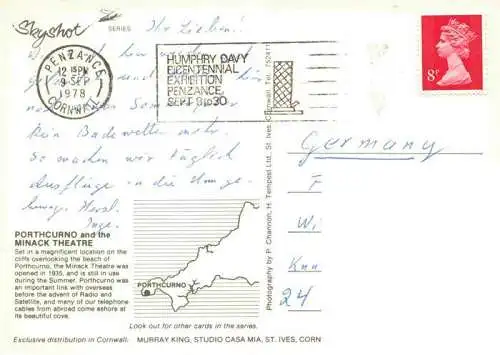 Skyshot SERIES
Ihr Lieben!
PENZANCE
12 15PM
9 SEP
1978
CORNWALL
HUMPHRY DAVY
BICENTENNIAL
EXHIBITION
PENZANCE
SEPT 8to30
8P
kein Badewetter mehr.
So machen wir täglich
Ausflüge in die Umge
bung. Herzl.
Inge.
Germany
F
Wi
24
PORTHCURNO and the
MINACK THEATRE
Set in a magnificent location on the
cliffs overlooking the beach of
Porthcurno, the Minack Theatre was
opened in 1935, and is still in use
during the Summer. Porthcurno was
an important link with overseas
before the advent of Radio and
Satellite, and many of our telephone
cables from abroad come ashore at
its beautiful cove.
PORTHCURNO
Look out for other cards in the series.
Photography by P. Channon, H. Tempest Ltd., St. Ives, Cornwall. Tel. 752411
Exclusive distribution in Cornwall: MURRAY KING, STUDIO CASA MIA, ST. IVES, CORN